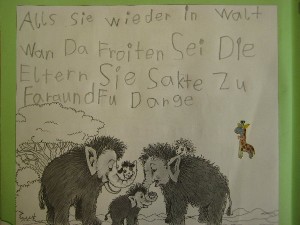 Alls sie wieder in Walt
Wan Da Froiten Sei Die
Eltern Sie Sakte Zu
Fara und Fu Dange